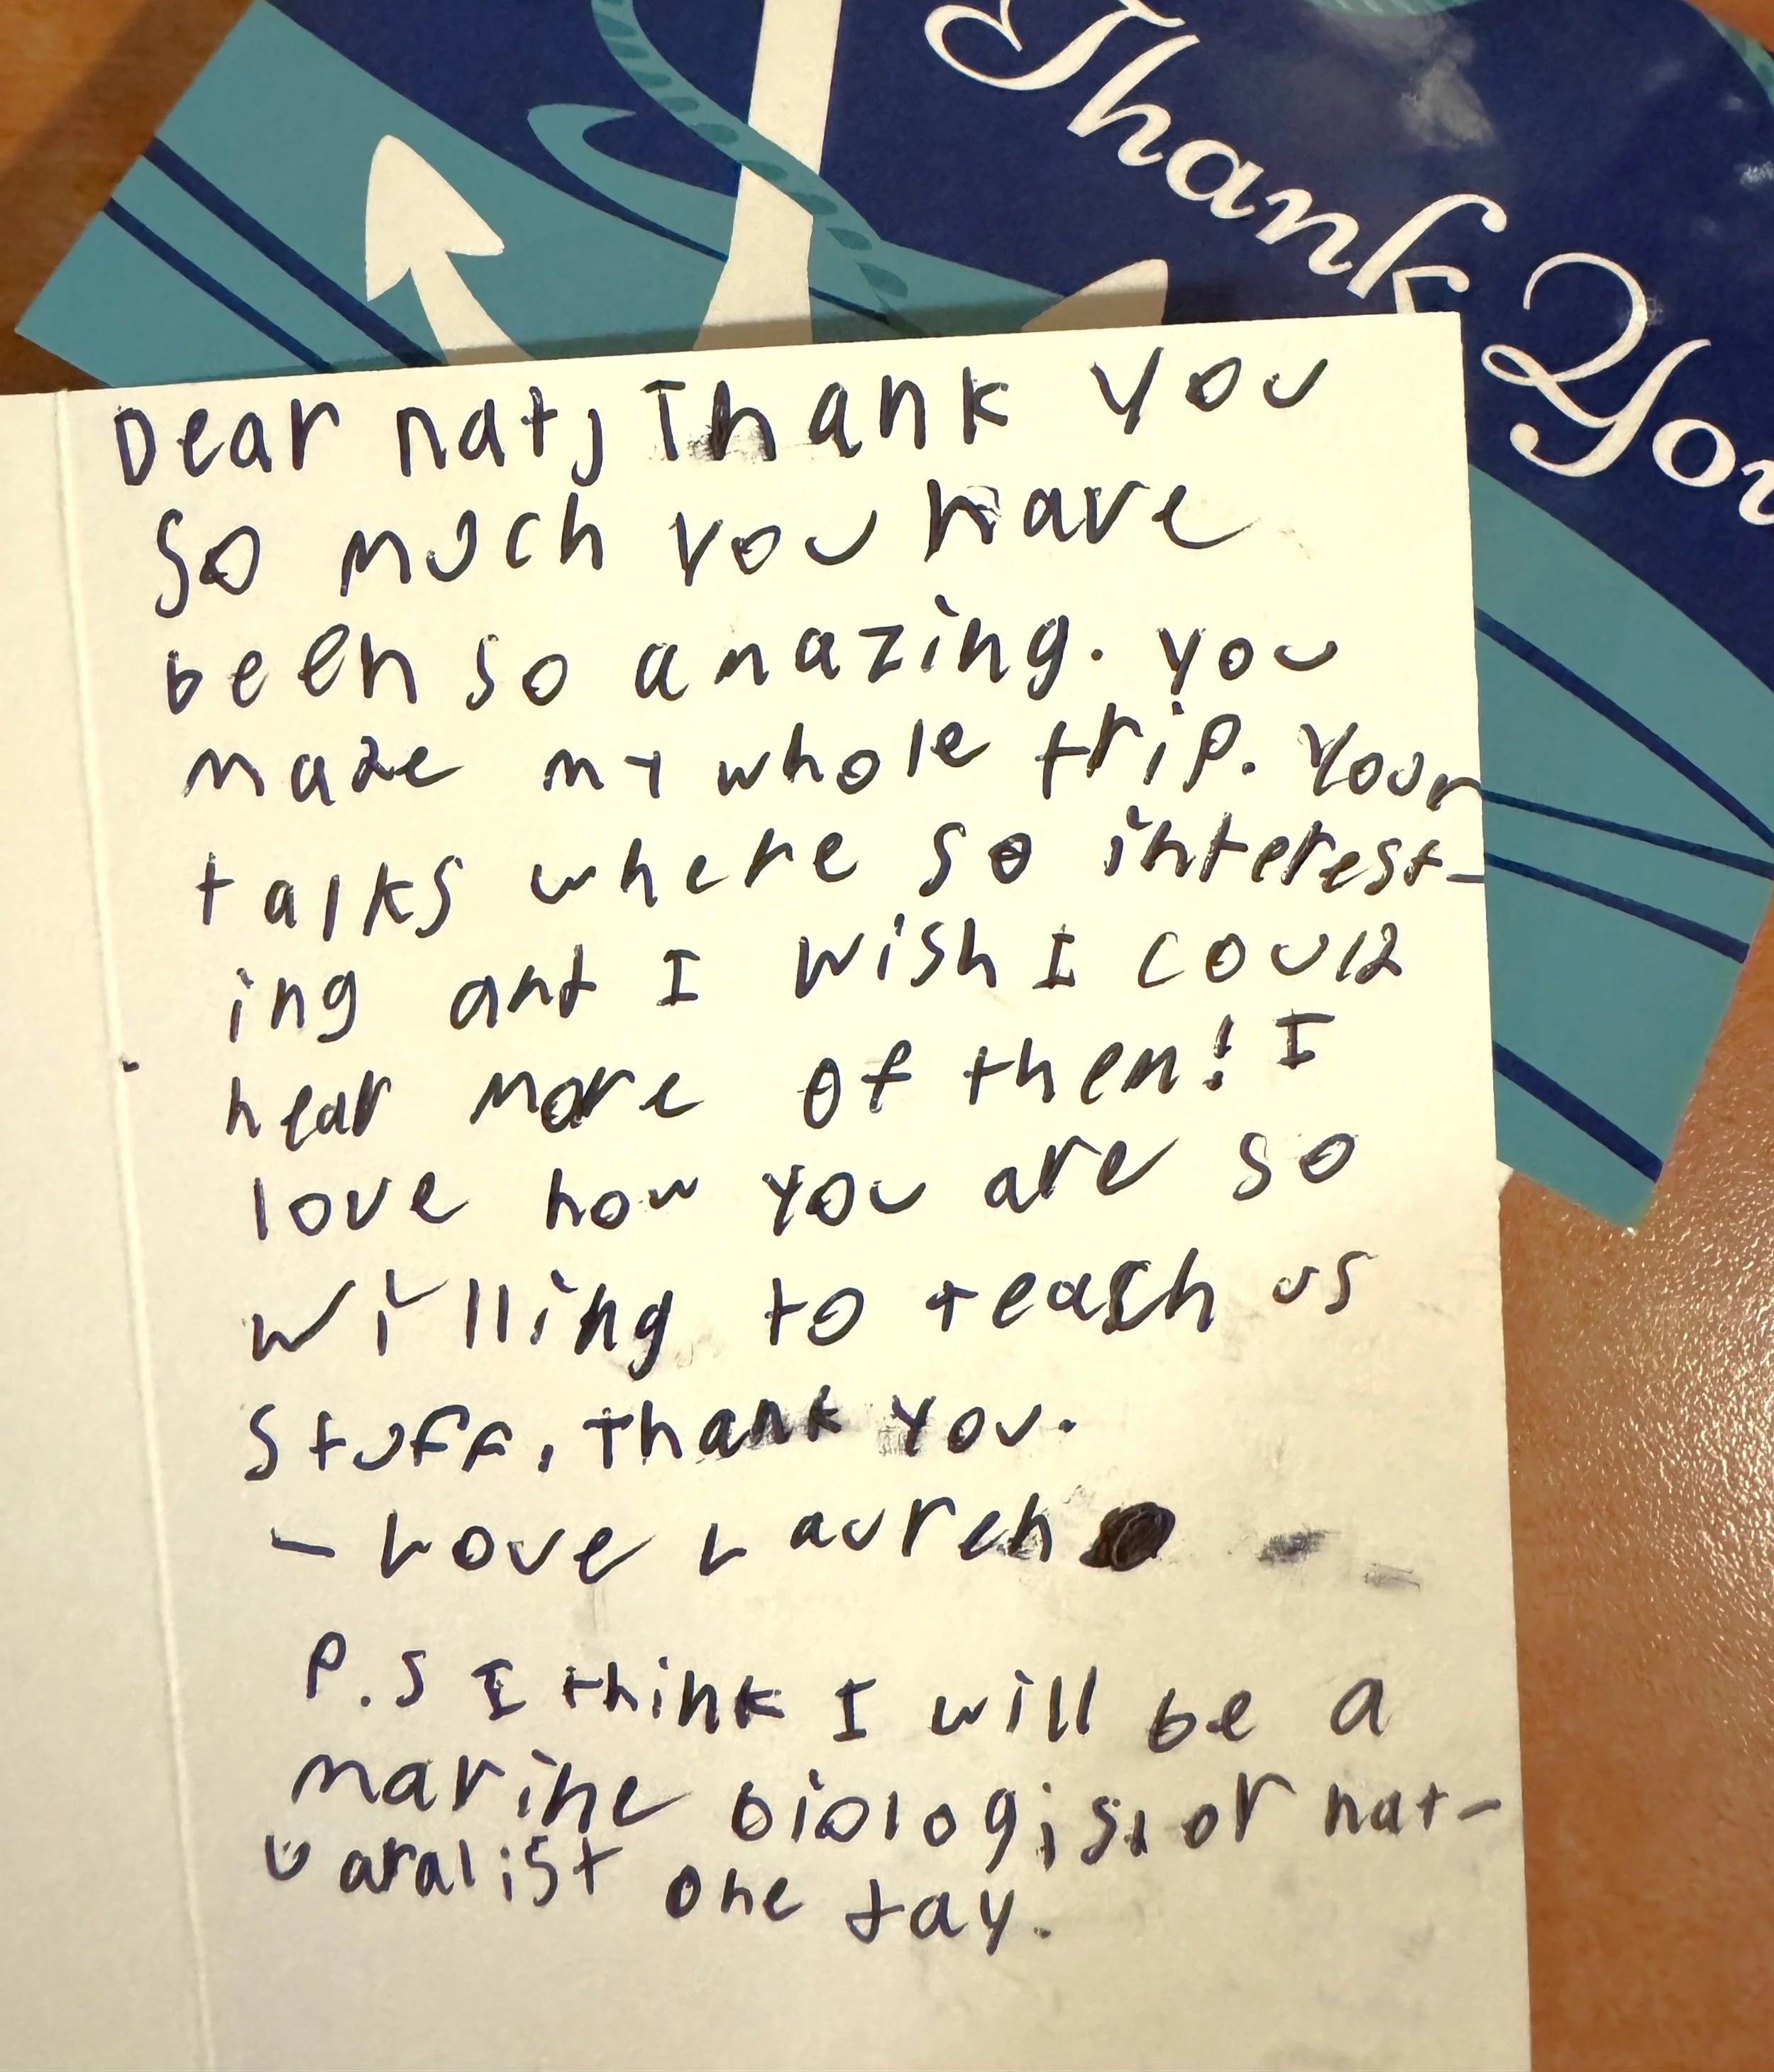 Thank You
Dear nat, Thank you
so much you have
been so amazing. you
made my whole trip. Your
talks where so interest-
ing and I wish I could
hear more of them! I
love how you are so
willing to teach us
stuff, thank you.
- Love Lauren
P.S I think I will be a
marine biologist or nat-
uaralist one day.